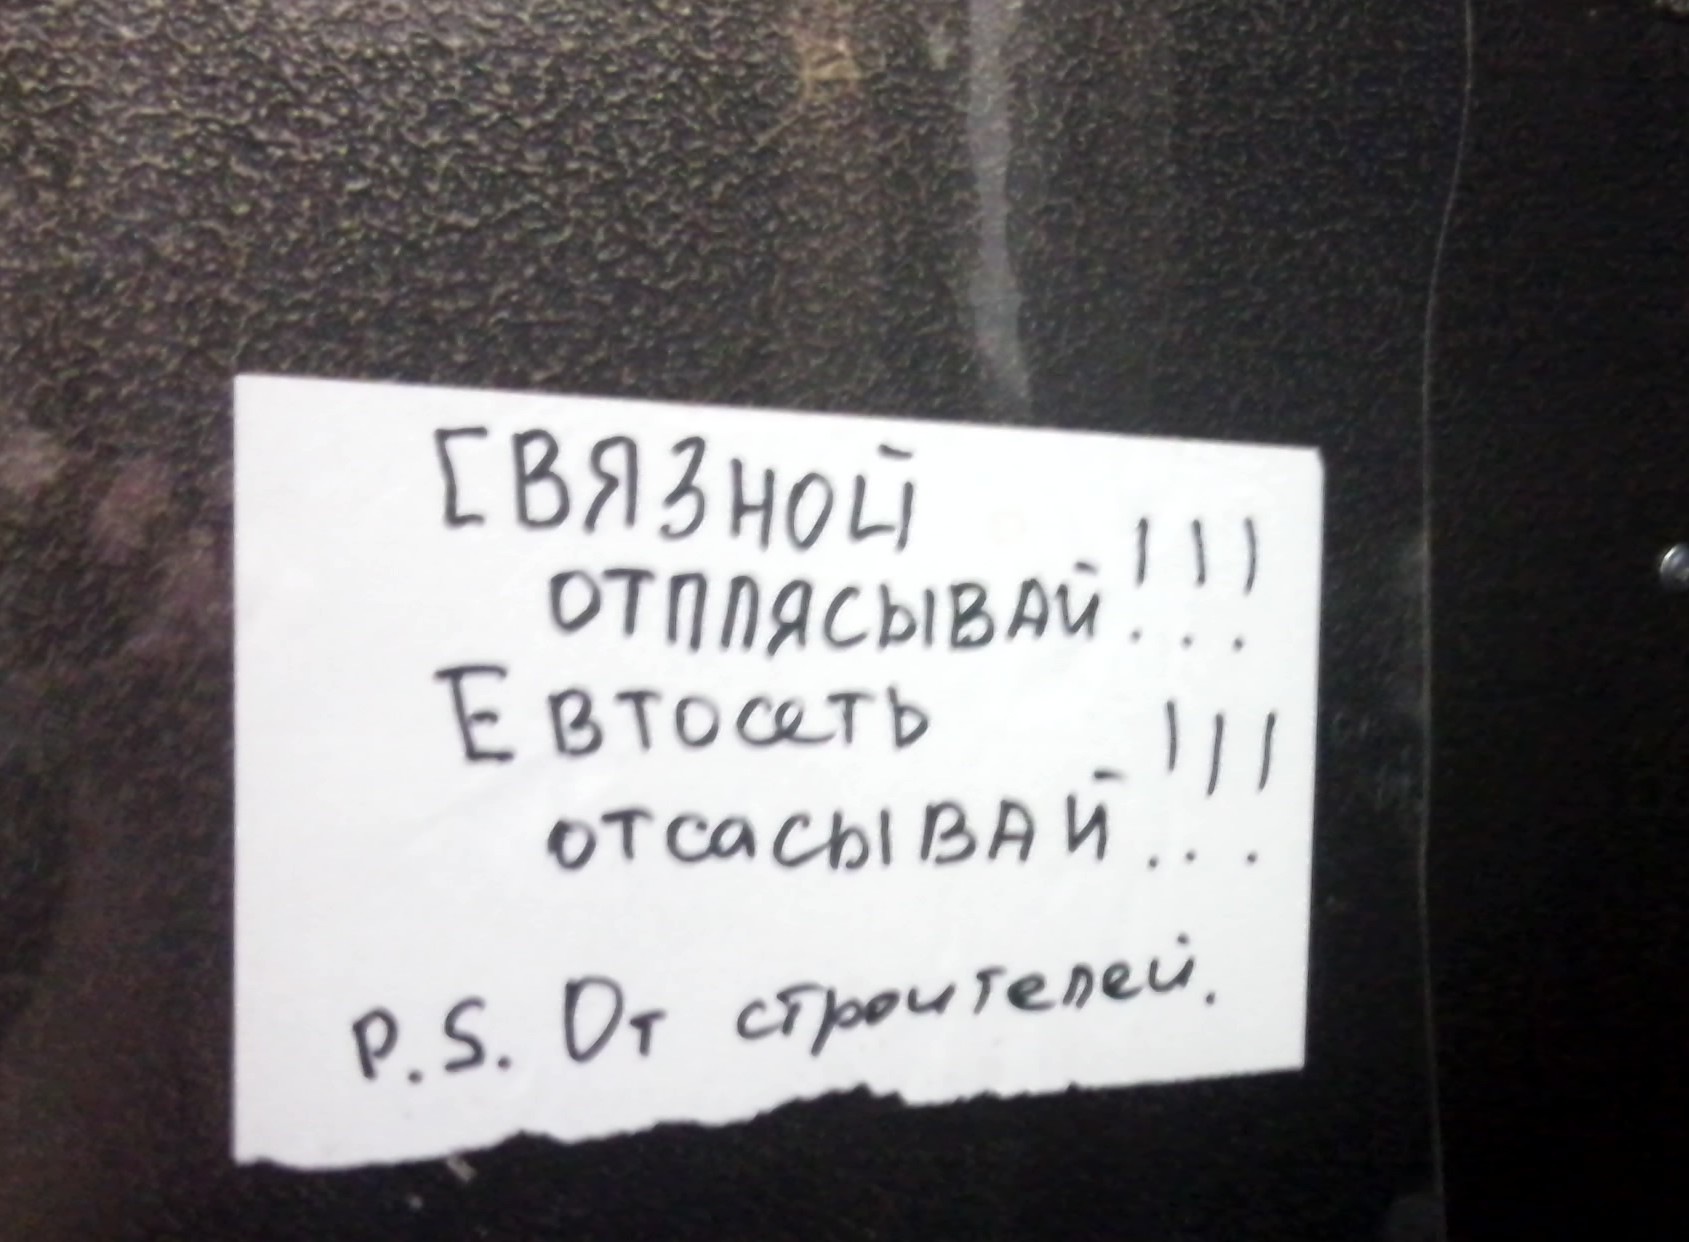 СВЯЗНОЙ
ОТПЛЯСЫВАЙ!!!
Евтосеть
отсасЫВАЙ!!!
P.S. От строителей.